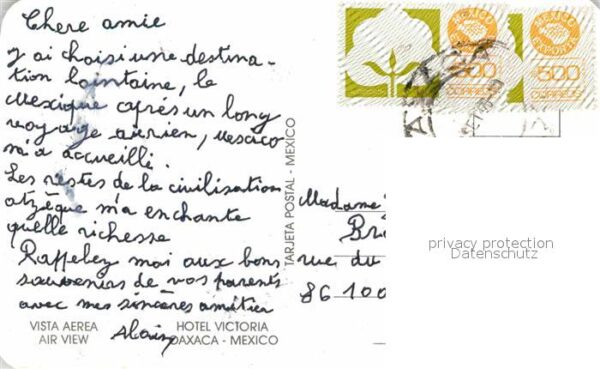 Chere amie
J'ai choisi une destina-
tion lointaine, le
Mexique après un long
voyage aérien, Mexico
m'a accueilli.
Les restes de la civilisation
atzèque m'a enchante
quelle richesse
Rappelez moi aux bons
souvenirs de vos parents
avec mes sincères amitiés
Alain
VISTA AEREA
AIR VIEW
HOTEL VICTORIA
OAXACA - MEXICO
TARJETA POSTAL - MEXICO
MEXICO
EXPORTA
500
CORREOS
MEXICO
EXPORTA
500
CORREOS
Madame
Bri
rue du
86100
privacy protection
Datenschutz